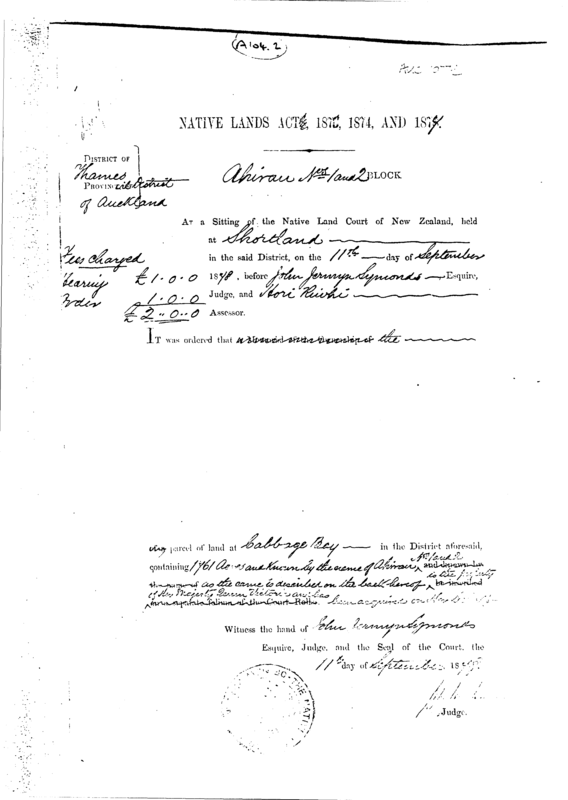 A104.2
NATIVE LANDS ACTS, 1873, 1874, AND 1878.
DISTRICT OF
Thames
PROVINCIAL District
of Auckland
Ahirau Nos 1 and 2 BLOCK
AT a Sitting of the Native Land Court of New Zealand, held
at Shortland
in the said District, on the 11th day of September
Fees charged
hearing £1.0.0 1878, before John Jermyn Symonds Esquire,
Order 1.0.0 Judge, and Hori
£2..0..0 Assessor.
IT was ordered that the
parcel of land at Cabbage Bay in the District aforesaid,
No 1 and 2
containing 1761 Acres and Known by the name of Ahirau
to the property
as the same is described on the back hereof
of Her Majesty Queen Victoria
been acquired
Witness the hand of John Jermyn Symonds
Esquire, Judge, and the Seal of the Court, the
11th day of September 1878.
Judge.